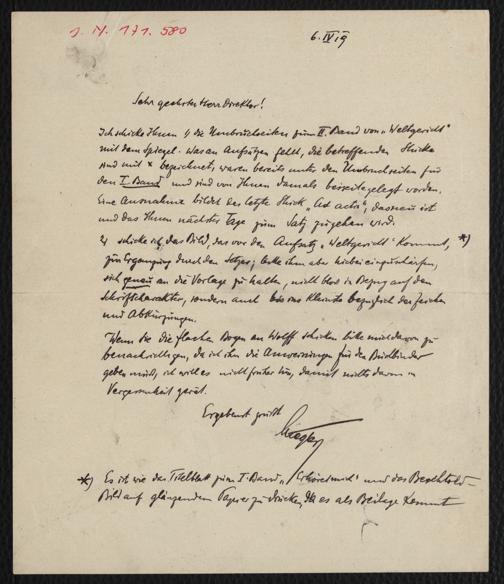 J. N. 171.580
6. IV 19
Sehr geehrter Herr Direktor!
Ich schicke Ihnen 1) die Umbruchseiten zum II. Band von „Weltgericht"
mit dem Spiegel. Was an Aufsätzen fehlt, die betreffenden Stücke
sind mit x bezeichnet, waren bereits unter den Umbruchseiten für
den I. Band und sind von Ihnen damals beiseitegelegt worden.
Eine Ausnahme bildet das letzte Stück „Ad acta", das neu ist
und das Ihnen nächster Tage zum Satz zugehen wird.
2) schicke ich das Bild, das vor den Aufsatz „Weltgericht" kommt, *)
zur Ergänzung durch den Setzer; bitte ihm aber hiebei einzuschärfen,
sich genau an die Vorlage zu halten, nicht blos in Bezug auf den
Schriftcharakter, sondern auch bis ins Kleinste bezüglich der Zeichen
und Abkürzungen.
Wenn Sie die flachen Bogen an Wolff schicken, bitte mich davon zu
benachrichtigen, da ich ihm die Anweisungen für den Buchbinder
geben muß, ich will es nicht früher tun, damit nichts davon in
Vergessenheit gerät.
Ergebenst grüßt
*) Es ist wie das Titelblatt zum I. Band, und das
Bild auf glänzendem Papier zu drucken, da es als Beilage kommt